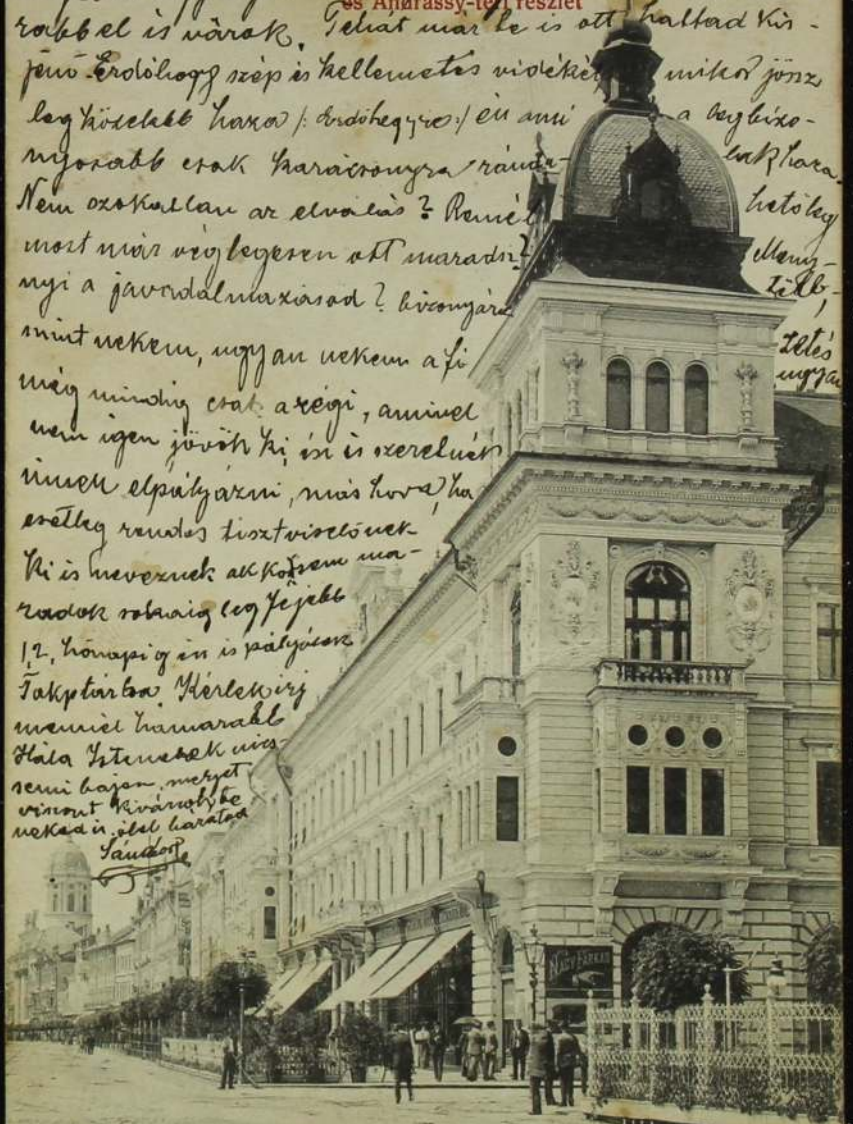 és Andrássy-téri részlet
rabbel is várok. Tehát már te is ott haltad Kis-
jenő Erdőhegy szép és kellemetes vidékét mikor jössz
legközelebb haza /: Erdőhegyre :/ én ami a legbizo-
nyosabb csak karácsonyra rándu- hatok haza.
Nem szokatlan az elválás? Remél hetőleg
most már véglegesen ott maradsz? Meny-
nyi a javadalmazásod? bizonyára több,
mint nekem, ugyan nekem a fi zetés
még mindig csak a régi, amivel ugyan
nem igen jövök ki, én is szeretnék
innen elpályázni, más hova, ha
esetleg rendes tisztviselőnek
ki is neveznek akkor sem ma-
radok sokáig legfejebb
1, 2, hónapig én is pályázok
Takptárba Kérlek irj
mennél hamarabb
Hála Istennek nics-
semi bajom, melyet
viszont kivánok
neked is, ölel baratod
Sándor
NAGY FARKAS